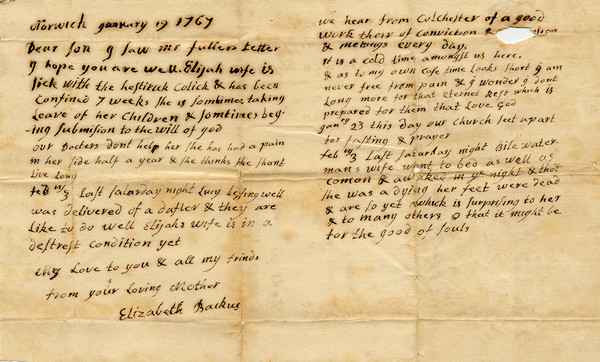 Norwich ganuary 19 1767
Dear Son g saw mr fullers Letter
g hope you are well. Elijah wife is
sick with the hestirick Colick & has been
Confined 7 weeks she is somtimes taking
leave of her Children & somtimes bey-
-ing submision to the will of god
our Docters dont help her she has had a pain
in her side half a year & she thinks she shant
Live Long
feb 3 Last saturday night Lucy
was delivered of a dafter & they are
Like to do well Elijahs wife is in a
destrest Condition yet
my Love to you & all my frinds
from your Loving Mother
Elizabeth Backus
we hear from Colchester of a good
work their of Conviction &
& metings every day.
it is a cold time amongst us here.
& as to my own Case time Looks short g am
never free from pain & g wonder g dont
Long more for that eternel Rest which is
prepared for them that Love God
gan 23 this day our Church set apart
for fasting & prayer
feb 3 Last saturday night Bile water
mans wife went to bed as well as
comon & awaked in ye night & thot
she was a dying her feet were dead
& are so yet which is surprising to her
& to many others o that it might be
for the good of souls